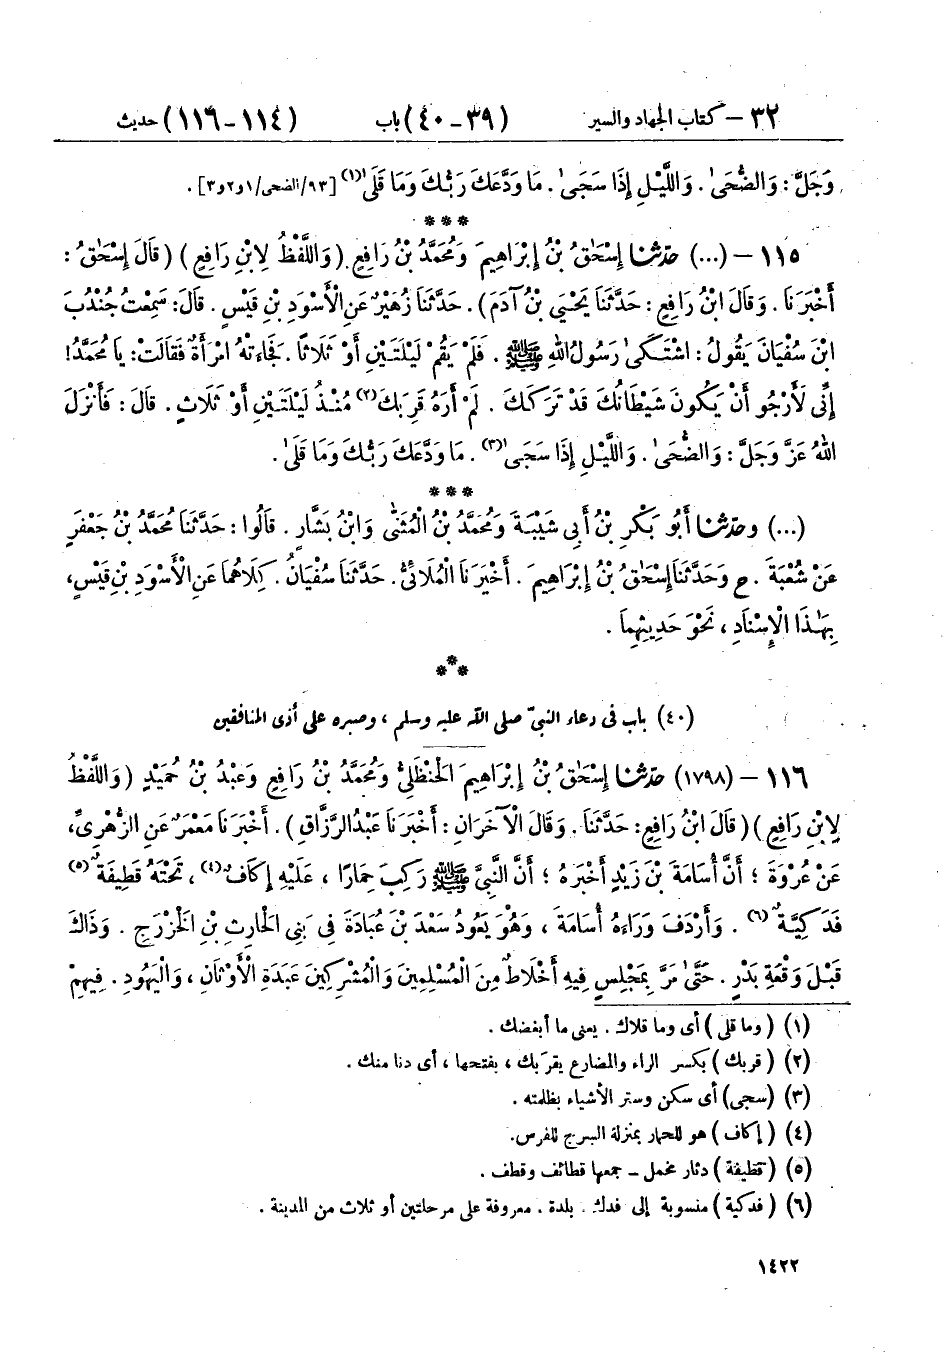 ٣٢ – كتاب الجهاد والسير (٣٩ - ٤٠) باب (١١٤ - ١١٦) حديث
وَجَلَّ : وَالضُّحَىٰ . وَاللَّيْلِ إِذَا سَجَىٰ . مَا وَدَّعَكَ رَبُّكَ وَمَا قَلَىٰ(١) [٩٣/الضحى/١و٢و٣] .
***
١١٥ – (...) حدّثنا إِسْحَٰقُ بْنُ إِبْرَاهِيمَ وَمُحَمَّدُ بْنُ رَافِعٍ (وَاللَّفْظُ لِابْنِ رَافِعٍ) (قَالَ إِسْحَٰقُ :
أَخْبَرَنَا . وَقَالَ ابْنُ رَافِعٍ : حَدَّثَنَا يَحْيَى بْنُ آدَمَ) . حَدَّثَنَا زُهَيْرٌ عَنِ الْأَسْوَدِ بْنِ قَيْسٍ . قَالَ: سَمِعْتُ جُنْدُبَ
ابْنَ سُفْيَانَ يَقُولُ : اشْتَكَىٰ رَسُولُ اللهِ ﷺ . فَلَمْ يَقُمْ لَيْلَتَيْنِ أَوْ ثَلَاثًا . فَجَاءَتْهُ امْرَأَةٌ فَقَالَتْ: يَا مُحَمَّدُ!
إِنِّي لَأَرْجُو أَنْ يَكُونَ شَيْطَانُكَ قَدْ تَرَكَكَ . لَمْ أَرَهُ قَرِبَكَ(٢) مُنْذُ لَيْلَتَيْنِ أَوْ ثَلَاثٍ . قَالَ : فَأَنْزَلَ
اللهُ عَزَّ وَجَلَّ : وَالضُّحَىٰ . وَاللَّيْلِ إِذَا سَجَىٰ(٣) . مَا وَدَّعَكَ رَبُّكَ وَمَا قَلَىٰ .
***
(...) وحدّثنا أَبُو بَكْرِ بْنُ أَبِي شَيْبَةَ وَمُحَمَّدُ بْنُ الْمُثَنَّىٰ وَابْنُ بَشَّارٍ . قَالُوا : حَدَّثَنَا مُحَمَّدُ بْنُ جَعْفَرٍ
عَنْ شُعْبَةَ . ح وَحَدَّثَنَا إِسْحَٰقُ بْنُ إِبْرَاهِيمَ . أَخْبَرَنَا الْمُلَائِيُّ . حَدَّثَنَا سُفْيَانُ . كِلَاهُمَا عَنِ الْأَسْوَدِ بْنِ قَيْسٍ،
بِهَٰذَا الْإِسْنَادِ ، نَحْوَ حَدِيثِهِمَا .
***
(٤٠) باب في دعاء النبيّ صلى الله عليه وسلم ، وصبره على أذى المنافقين
١١٦ – (١٧٩٨) حدّثنا إِسْحَٰقُ بْنُ إِبْرَاهِيمَ الْحَنْظَلِيُّ وَمُحَمَّدُ بْنُ رَافِعٍ وَعَبْدُ بْنُ حُمَيْدٍ (وَاللَّفْظُ
لِابْنِ رَافِعٍ) (قَالَ ابْنُ رَافِعٍ: حَدَّثَنَا . وَقَالَ الْآخَرَانِ : أَخْبَرَنَا عَبْدُ الرَّزَّاقِ) . أَخْبَرَنَا مَعْمَرٌ عَنِ الزُّهْرِيِّ،
عَنْ عُرْوَةَ ؛ أَنَّ أُسَامَةَ بْنَ زَيْدٍ أَخْبَرَهُ ؛ أَنَّ النَّبِيَّ ﷺ رَكِبَ حِمَارًا ، عَلَيْهِ إِكَافٌ(٤) ، تَحْتَهُ قَطِيفَةٌ(٥)
فَدَكِيَّةٌ(٦) . وَأَرْدَفَ وَرَاءَهُ أُسَامَةَ ، وَهُوَ يَعُودُ سَعْدَ بْنَ عُبَادَةَ فِي بَنِي الْحَارِثِ بْنِ الْخَزْرَجِ . وَذَاكَ
قَبْلَ وَقْعَةِ بَدْرٍ . حَتَّىٰ مَرَّ بِمَجْلِسٍ فِيهِ أَخْلَاطٌ مِنَ الْمُسْلِمِينَ وَالْمُشْرِكِينَ عَبَدَةِ الْأَوْثَانِ ، وَالْيَهُودِ . فِيهِمْ
(١) (وما قلى) أى وما قلاك . يعنى ما أبغضك .
(٢) (قربك) بكسر الراء والمضارع يقرَبك ، بفتحها ، أى دنا منك .
(٣) (سجى) أى سكن وستر الأشياء بظلمته .
(٤) (إكاف) هو للحمار بمنزلة السرج للفرس.
(٥) (قطيفة) دثار مخمل – جمعها قطائف وقطف .
(٦) (فدكية) منسوبة إلى فدك . بلدة . معروفة على مرحلتين أو ثلاث من المدينة .
١٤٢٢